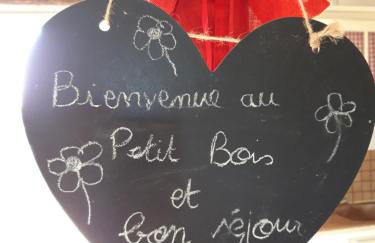 Bienvenue au
Petit Bois
et
bon séjour